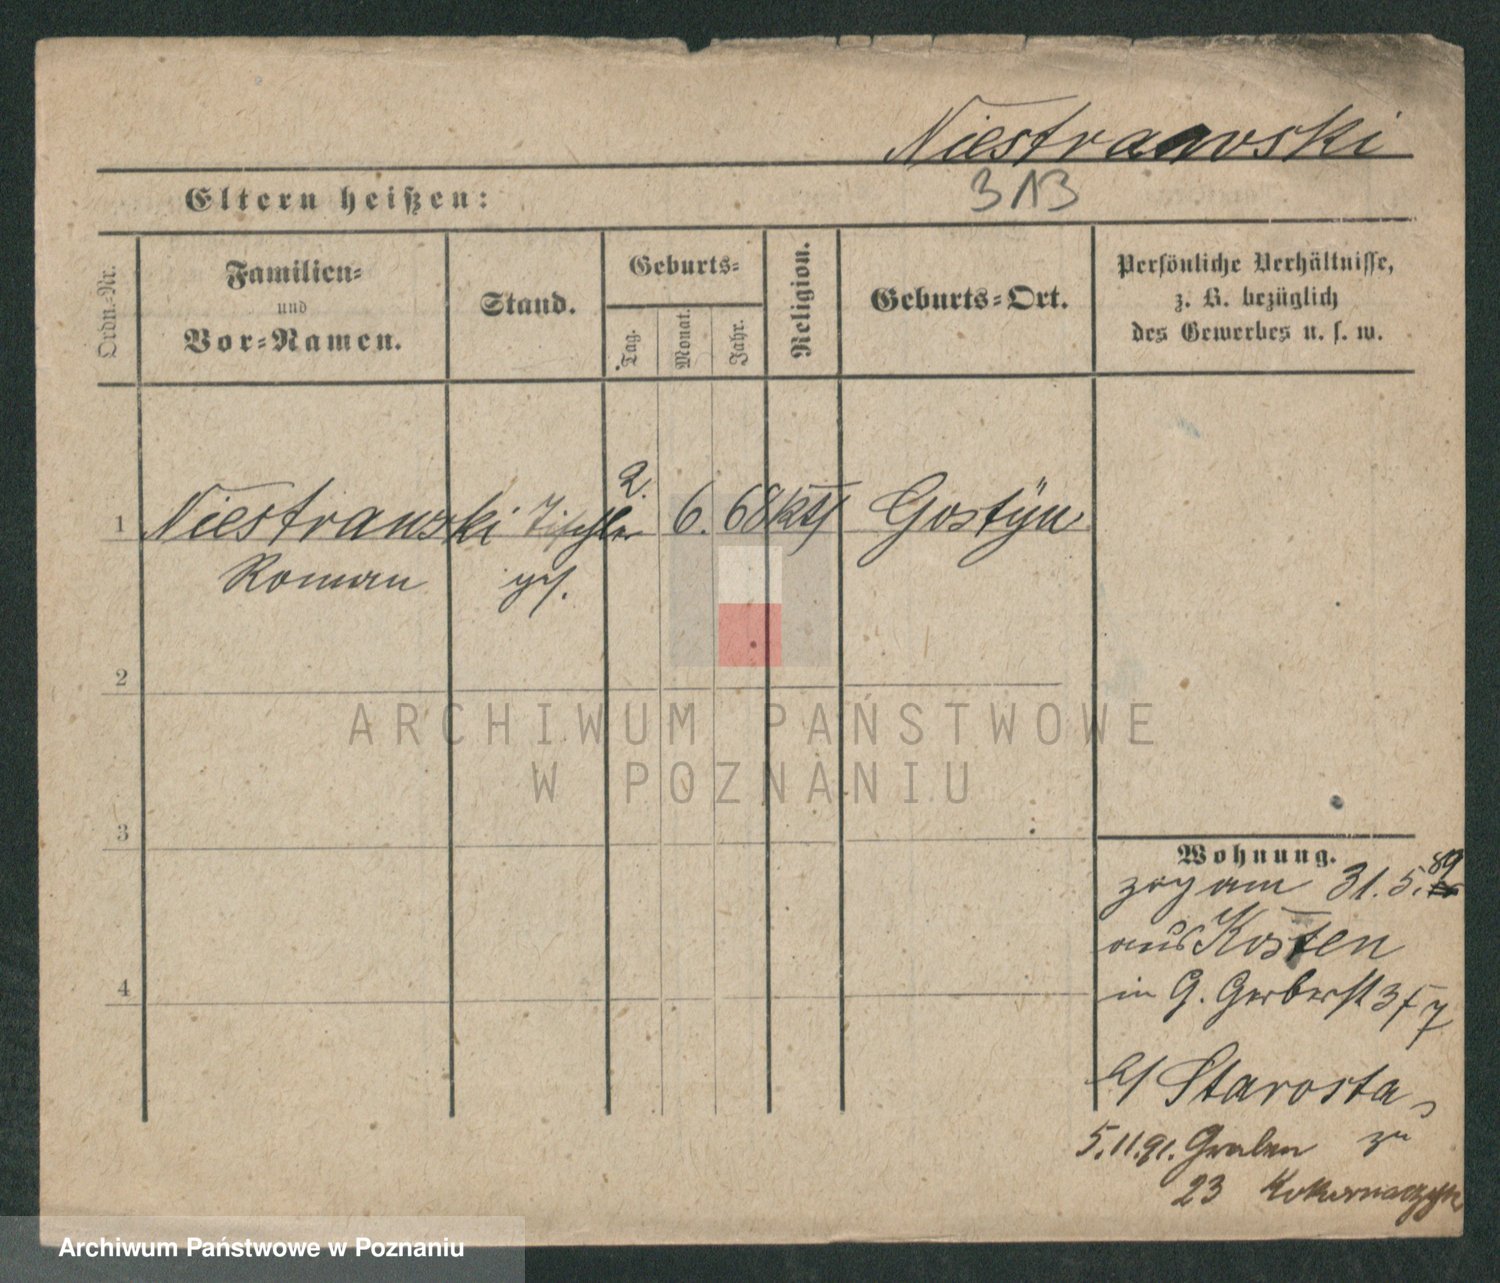 Niestrawski
313
Eltern heißen:
Ordn.-Nr.
Familien-
und
Vor-Namen.
Stand.
Geburts-
Tag.
Monat.
Jahr.
Religion.
Geburts-Ort.
Persönliche Verhältnisse,
z. B. bezüglich
des Gewerbes u. s. w.
1 Niestrawski Tischler 2. 6. 68 kth Gostÿn
Roman gs.
2
3
4
Wohnung.
zog am 31. 5. 89
aus Kosten
in G. Gerberst
b/ Starosta
5.11.91. Graben zu
23
ARCHIWUM PAŃSTWOWE
W POZNANIU
Archiwum Państwowe w Poznaniu